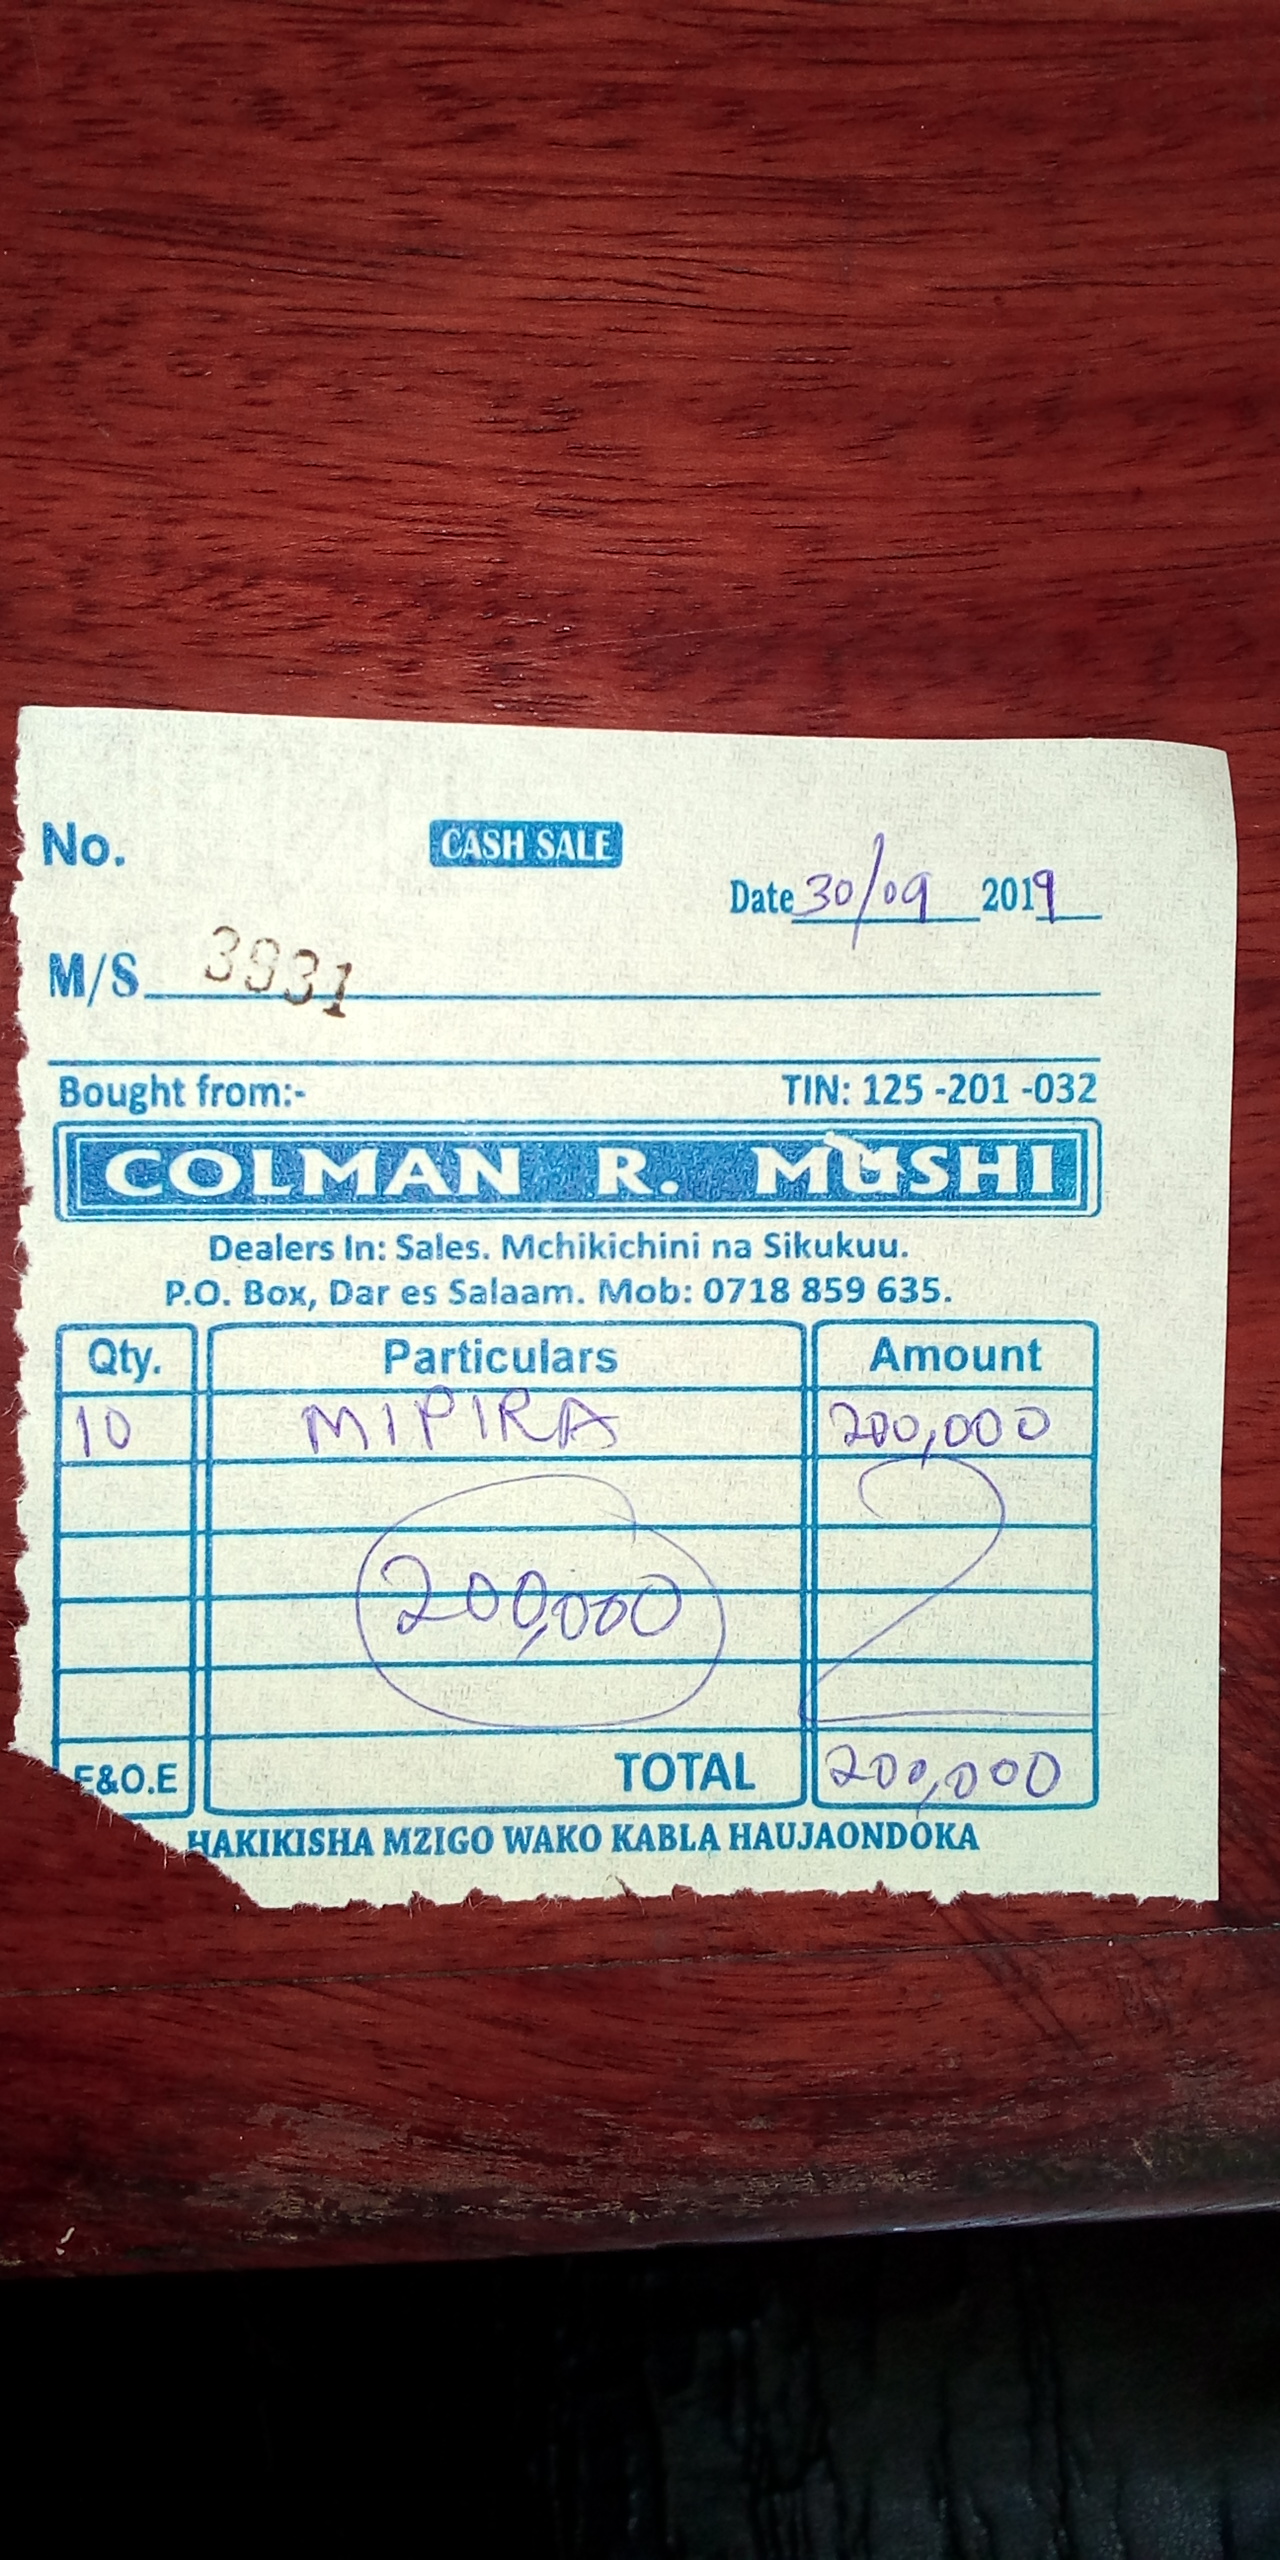 No.
CASH SALE
Date 30/09 2019
M/S 3931
Bought from:- TIN: 125 -201 -032
COLMAN R. MUSHI
Dealers In: Sales. Mchikichini na Sikukuu.
P.O. Box, Dar es Salaam. Mob: 0718 859 635.
Qty. Particulars Amount
10 MIPIRA 200,000
200,000
E&O.E TOTAL 200,000
HAKIKISHA MZIGO WAKO KABLA HAUJAONDOKA